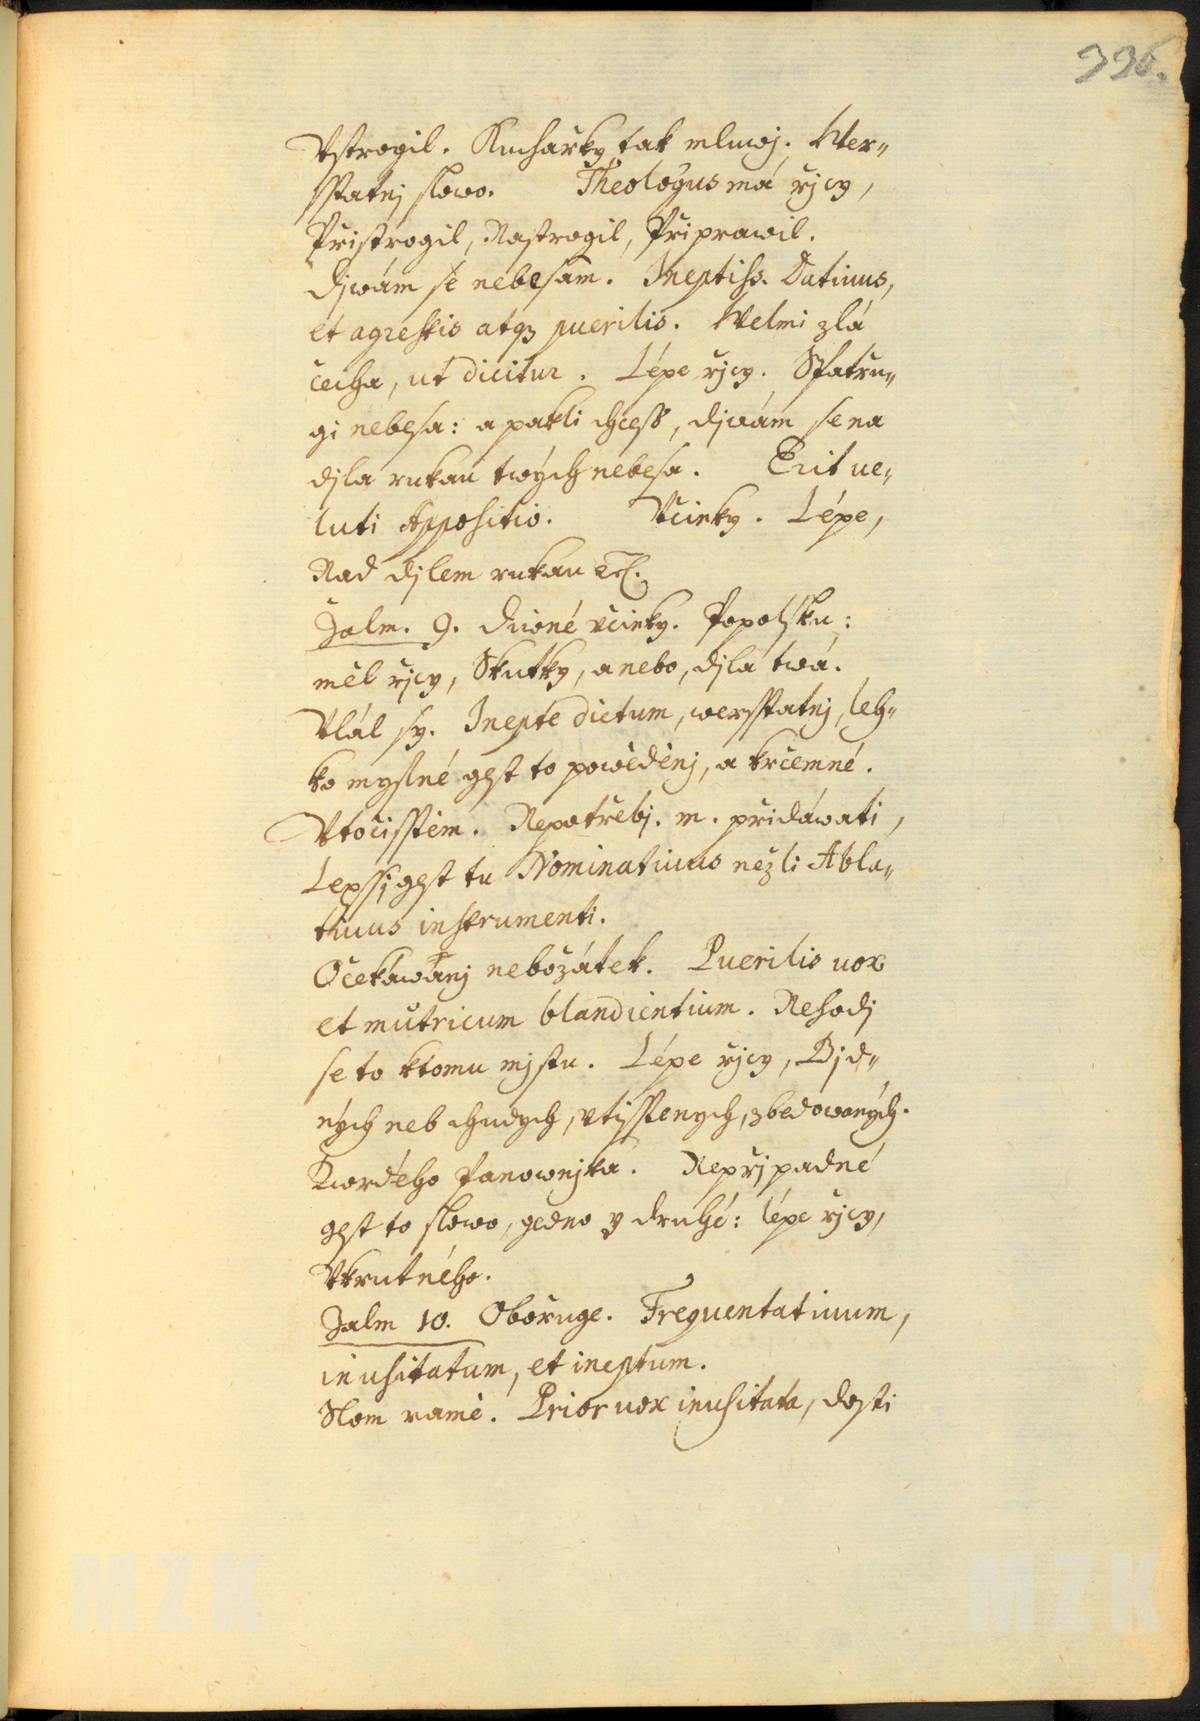 336.
Vstrogil. Kuchařky tak mluwj. Wer„
sstatnj slowo. Theologus má řjcy,
Přistrogil, Nastrogil, Připrawil.
Djwám se nebesam. Ineptiss. Datiuus,
et agrestis atq3 puerilis. Welmi zlá
čecha, ut dicitur. Lépe řjcy. Spatřu„
gi nebesa: a pakli chcess, djwám se na
djla rukau twých nebesa. Erit ue„
luti Appositio. Včinky. Lépe,
Nad djlem rukau etc.
Žalm. 9. Diwné včinky. Popolsku:
měl řjcy, Skutky, anebo, djla twá.
Vlál sy. Inepte dictum, wersstatnj, leh„
ko myslné gest to powěděnj, a krčemné.
Vtočisstěm. Nepotřebj. m. přidáwati,
Lepssj gest tu Nominatiuus nežli Abla„
tiuus instrumenti.
Očekáwánj nebožátek. Puerilis uox
et nutricum blandientium. Nehodj
se to ktomu mjstu. Lépe řjcy, Bjd„
ných neb chudych, vtisstenych, zbedowaných.
Twrdého Panownjka. Nepřjpadné
gest to slowo, gedno y druhé: lépe řjcy,
Vkrutného.
Žalm 10. Obořuge. Frequentatiuum,
inusitatum, et ineptum.
Slom ramě. Prior uox inusitata, dosti
MZK
MZK